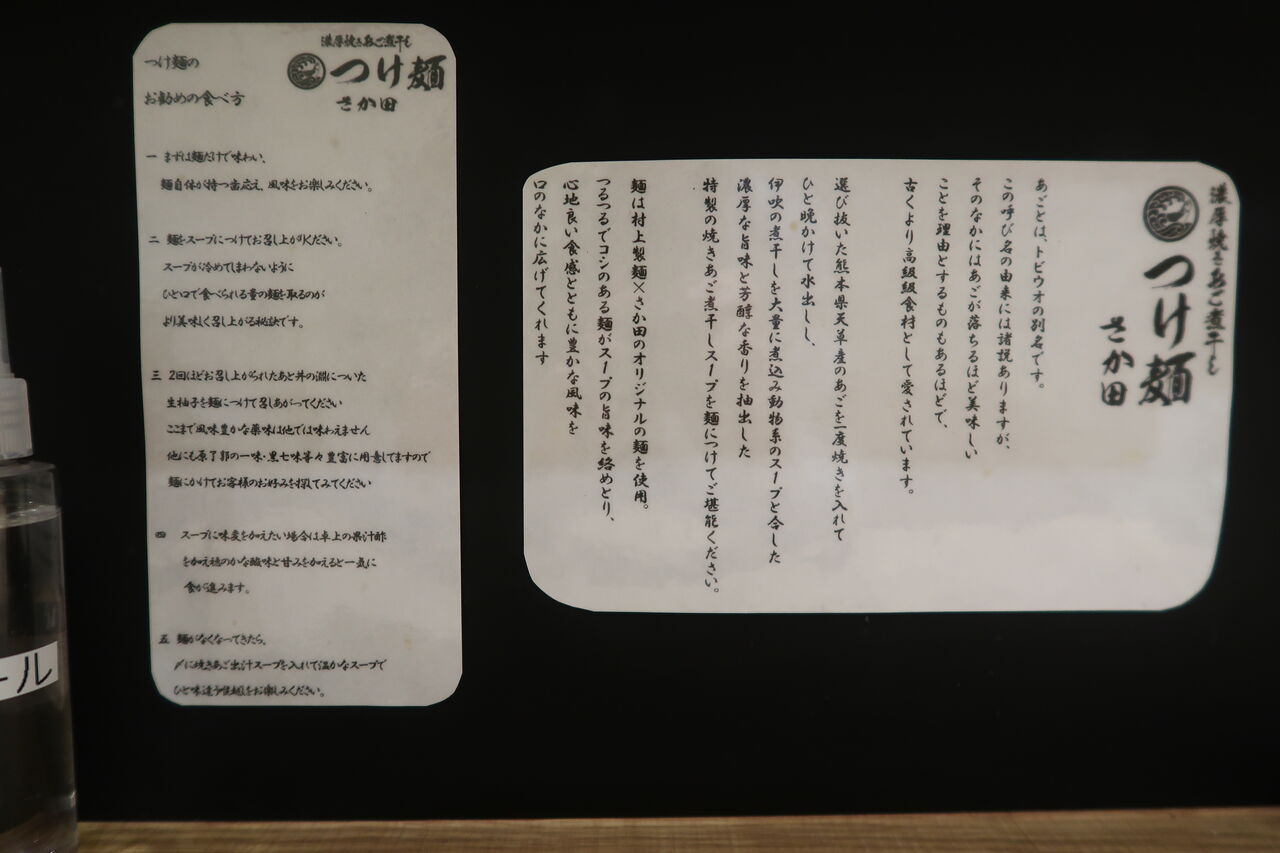 つけ麺の
お勧めの食べ方
濃厚焼きあご煮干し
つけ麺
さか田
一 まずは麺だけで味わい、
麺自体が持つ歯応え、風味をお楽しみください。
二 麺をスープにつけてお召し上がりください。
スープが冷めてしまわないように
ひと口で食べられる量の麺を取るのが
より美味しく召し上がる秘訣です。
三 2回ほどお召し上がられたあと丼の淵についた
生柚子を麺につけて召しあがってください
ここまで風味豊かな薬味は他では味わえません
他にも原了郭の一味・黒七味等々豊富に用意してますので
麺にかけてお客様のお好みを探してみてください
四 スープに味変を加えたい場合は卓上の果汁酢
を加え穏のかな酸味と甘みを加えると一気に
食が進みます。
五 麺がなくなってきたら、
〆に焼きあご出汁スープを入れて温かなスープで
ひと味違う
をお楽しみください。
濃厚焼きあご煮干し
つけ麺
さか田
あごとは、トビウオの別名です。
この呼び名の由来には諸説ありますが、
そのなかにはあごが落ちるほど美味しい
ことを理由とするものもあるほどで、
古くより高級級食材として愛されています。
選び抜いた熊本県天草産のあごを一度焼きを入れて
ひと晩かけて水出しし、
伊吹の煮干しを大量に煮込み動物系のスープと合した
濃厚な旨味と芳醇な香りを抽出した
特製の焼きあご煮干しスープを麺につけてご堪能ください。
麺は村上製麺×さか田のオリジナルの麺を使用。
つるつるでコシのある麺がスープの旨味を絡めとり、
心地良い食感とともに豊かな風味を
口のなかに広げてくれます
ール